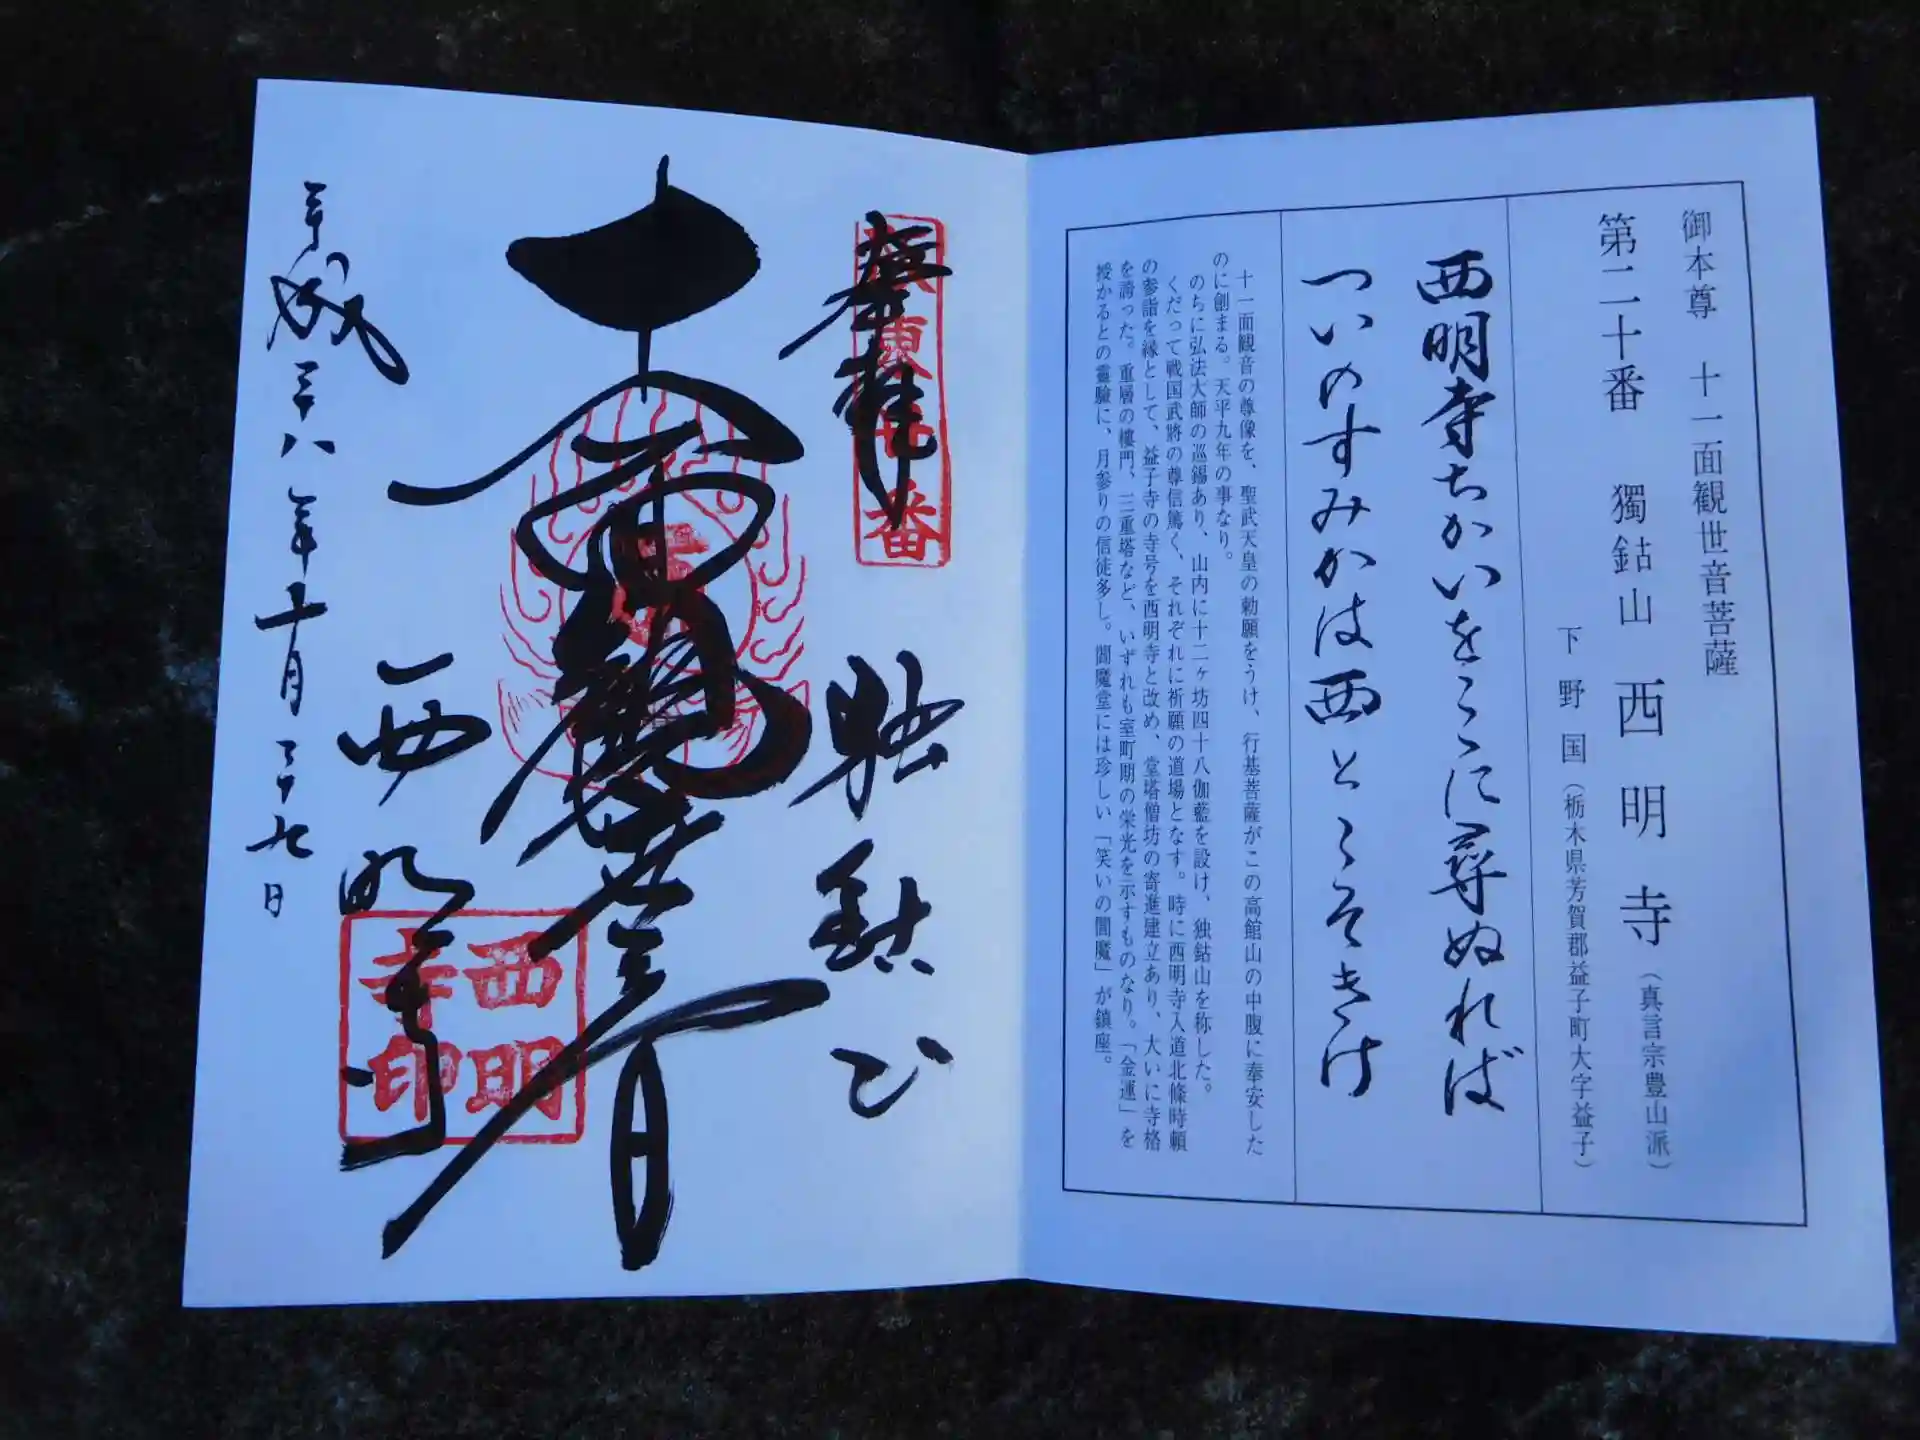 御本尊　十一面観世音菩薩
第二十番　獨鈷山　西明寺（真言宗豊山派）
下野国（栃木県芳賀郡益子町大字益子）
西明寺ちかいをこゝに尋ぬれば
ついのすみかは西とこそきけ
十一面観音の尊像を、聖武天皇の勅願をうけ、行基菩薩がこの高館山の中腹に奉安した
のに創まる。天平九年の事なり。
のちに弘法大師の巡錫あり、山内に十二ヶ坊四十八伽藍を設け、独鈷山を称した。
くだって戦国武将の尊信篤く、それぞれに祈願の道場となす。時に西明寺入道北條時頼
の参詣を縁として、益子寺の寺号を西明寺と改め、堂塔僧坊の寄進建立あり、大いに寺格
を誇った。重層の樓門、三重塔など、いずれも室町期の栄光を示すものなり。「金運」を
授かるとの霊験に、月参りの信徒多し。閻魔堂には珍しい「笑いの閻魔」が鎮座。
奉拝
坂東廿番
独鈷山
十一面観世音
西明寺
西明寺印
平成二十八年十月二十九日